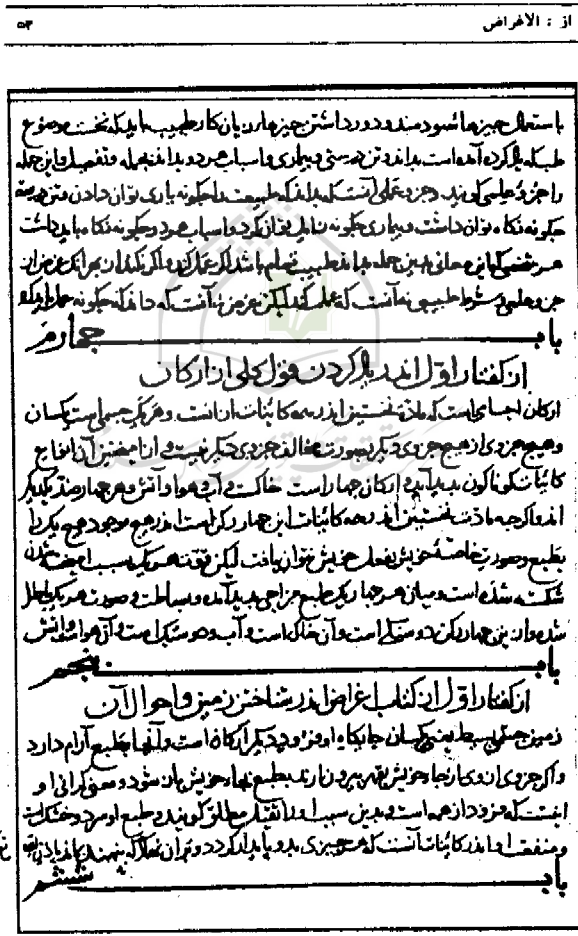 از : الاغراض
۵۳
باستعمال چیزها سودمند و دور داشتن چیزها زیان کار طبیب باید که نخست موضوع
طب که یاد کرده آمده است بداند و تن درستی و بیماری و اسباب هر دو بداند بجمله و تفصیل و این جمله
را جزو علمی گویند و جزو عملی آنست که بداند که طبیعت را چگونه یاری توان دادن و تن درست
چگونه نگاه توان داشت و بیماری چگونه زایل توان کرد و اسباب هر دو چگونه نگاه باید داشت
هر شخصی که این معانی بدین جمله بداند طبیب تمام باشد اگر عمل کند و اگر نکند از بهر آنکه غرض از
جزو علمی و شرط طبیبی نه آنست که عمل کند لیکن غرض آنست که داند که چگونه عمل
باب چهارم
از گفتار اول اندر یاد کردن قول کلی از ارکان
ارکان اجسامی است که مادت نخستین اندر همه کاینات آنست و هر یک جسمی است یکسان
و هیچ جزوی از هیچ جزوی دیگر بصورت مخالف جزوی دیگر نیست و از آمیختن آن انواع
کاینات گوناگون پدید آید و ارکان چهار است خاک و آب و هوا و آتش و هر چهار ضد یکدیگر
اند و اگر چه مادت نخستین اندر همه کاینات این چهار رکن است اندر هیچ موجود هیچ یک را
بطبع و صورت خاصه خویش بفعل خویش نتوان یافت لیکن قوت هر یک بسبب آمیخته شدن
شکسته شده است و میان هر چهار یک طبع مزاجی پدید آمده و بساطت و صورت هر یک باطل
شده و از این چهار رکن دو سنگی است و آن خاک است و آب و دو سبک است و آن هوا است و آتش
باب پنجم
از گفتار اول از کتاب اغراض اندر شناختن زمین و احوال آن
زمین جسمی بسیط یعنی یکسان جایگاه او فرود دیگر ارکان است و آنجا بطبع آرام دارد
و اگر جزوی از وی از جاء خویش بقهر بیرون آرند بطبع بجاء خویش باز شود و معنی گرانی او
اینست که فرود از همه است و بدین سبب او را ثقیل مطلق گویند و طبع او سرد و خشک است
و منفعت او اندر کاینات آنست که هر چیزی بدو پایدار گردد و بران شکل که نهند بماند
باب ششم